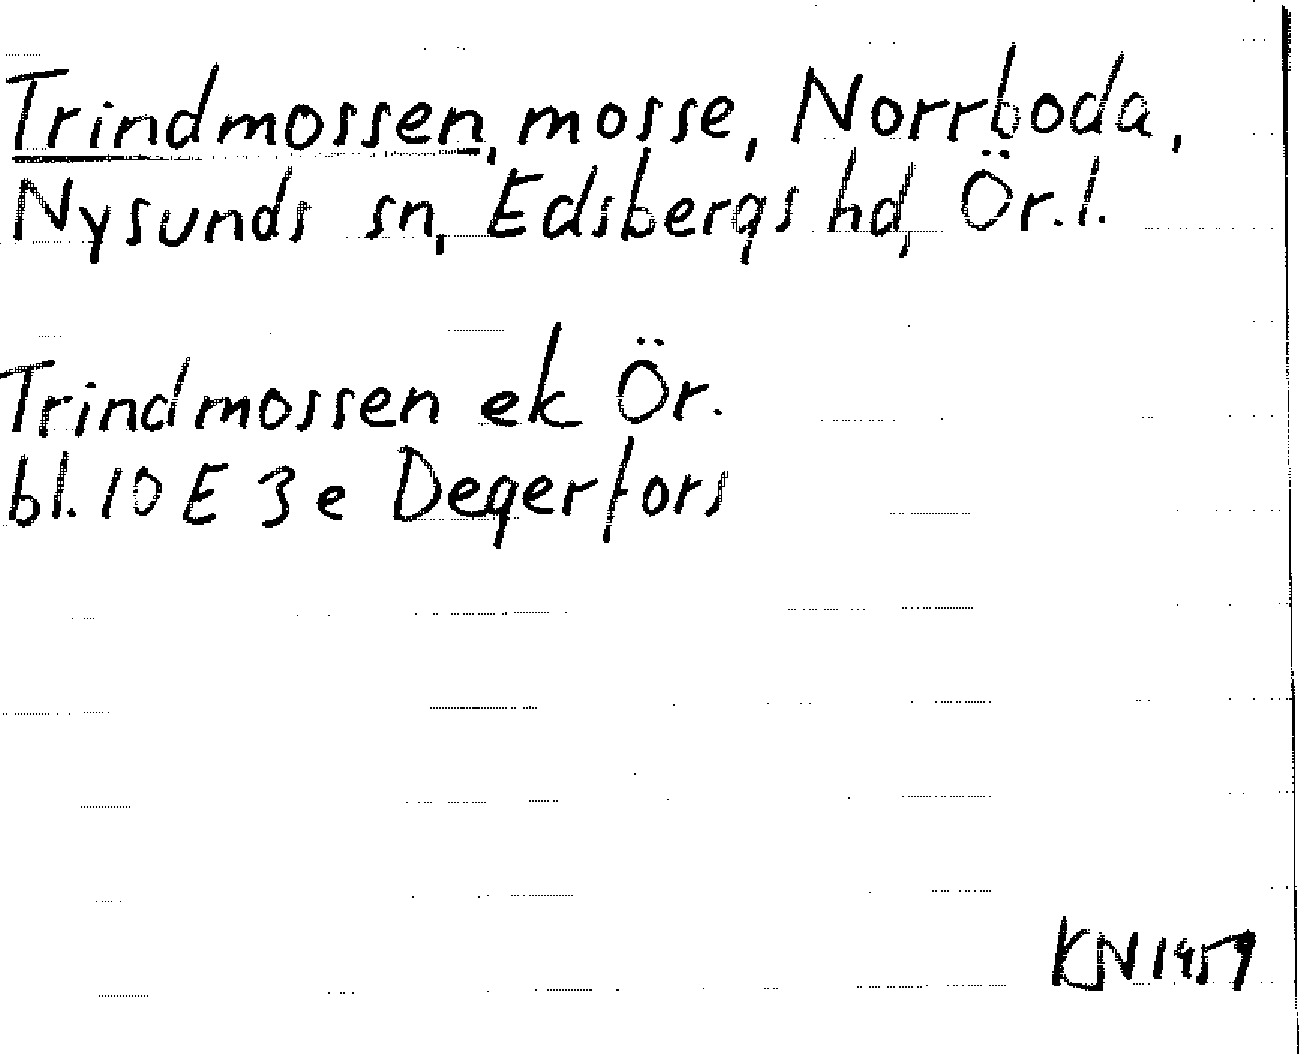 Trindmossen, mosse, Norrboda,
Nysunds sn, Edsbergs hd, Ör. l.
Trindmossen ek Ör.
bl. 10 E 3 e Degerfors
KN 1957